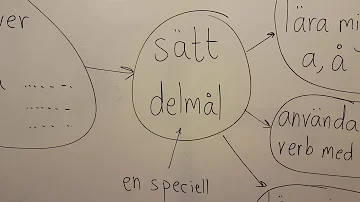 ver
sätt
delmål
en speciell
lära mi
a, å
använda
verb med